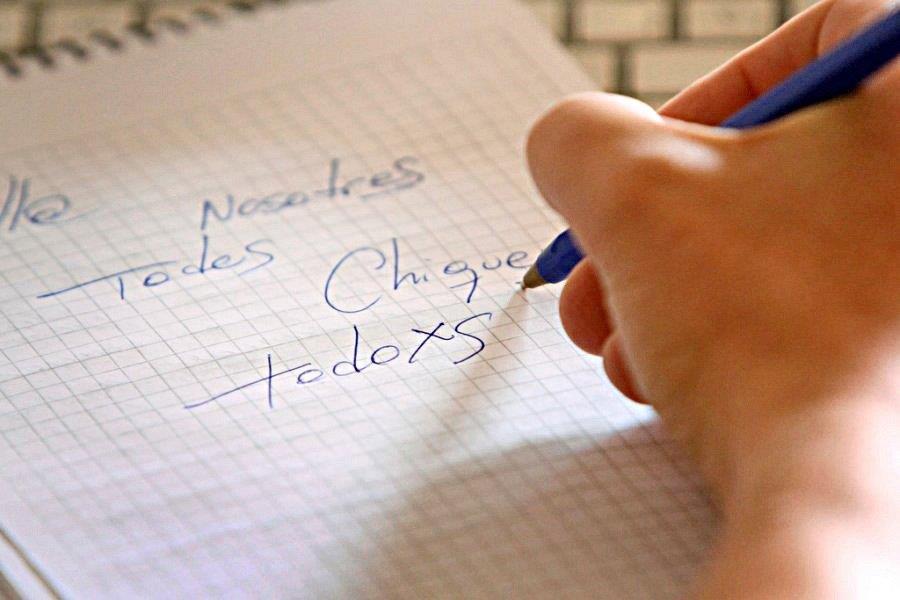 lle Nosotres
Todes Chique
todoxs